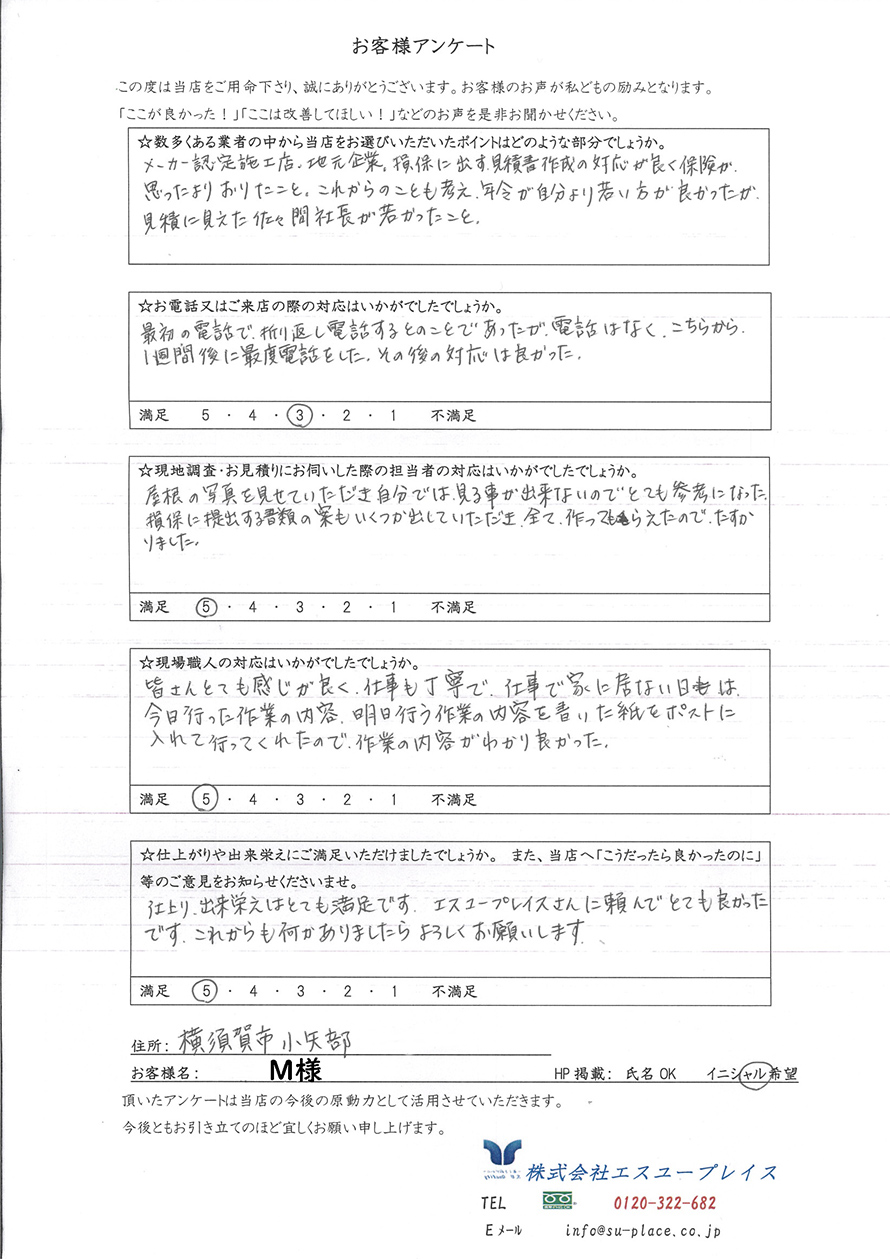 お客様アンケート
この度は当店をご用命下さり、誠にありがとうございます。お客様のお声が私どもの励みとなります。
「ここが良かった！」「ここは改善してほしい！」などのお声を是非お聞かせください。
☆数多くある業者の中から当店をお選びいただいたポイントはどのような部分でしょうか。
メーカー認定施工店、地元企業。損保に出す見積書作成の対応が良く保険が、
思ったよりおりたこと。これからのことも考え、年令が自分より若い方が良かったが、
見積に見えた佐々間社長が若かったこと。
☆お電話又はご来店の際の対応はいかがでしたでしょうか。
最初の電話で、折り返し電話するとのことであったが、電話はなく、こちらから、
1週間後に最度電話をした。その後の対応は良かった。
満足 5・4・3・2・1 不満足
☆現地調査・お見積りにお伺いした際の担当者の対応はいかがでしたでしょうか。
屋根の写真を見せていただき自分では、見る事が出来ないのでとても参考になった。
損保に提出する書類の案もいくつか出していただき、全て、作ってもらえたので、たすか
りました。
満足 5・4・3・2・1 不満足
☆現場職人の対応はいかがでしたでしょうか。
皆さんとても感じが良く、仕事も丁寧で、仕事で家に居ない日は、
今日行った作業の内容、明日行う作業の内容を書いた紙をポストに
入れて行ってくれたので、作業の内容がわかり良かった。
満足 5・4・3・2・1 不満足
☆仕上がりや出来栄えにご満足いただけましたでしょうか。 また、当店へ「こうだったら良かったのに」
等のご意見をお知らせくださいませ。
仕上り、出来栄えはとても満足です。 エスユープレイスさんに頼んでとても良かった
です。これからも何かありましたらよろしくお願いします。
満足 5・4・3・2・1 不満足
住所： 横須賀市小矢部
お客様名： M様 HP掲載： 氏名OK イニシャル希望
頂いたアンケートは当店の今後の原動力として活用させていただきます。
今後ともお引き立てのほど宜しくお願い申し上げます。
株式会社エスユープレイス
TEL 0120-322-682
Eメール info@su-place.co.jp